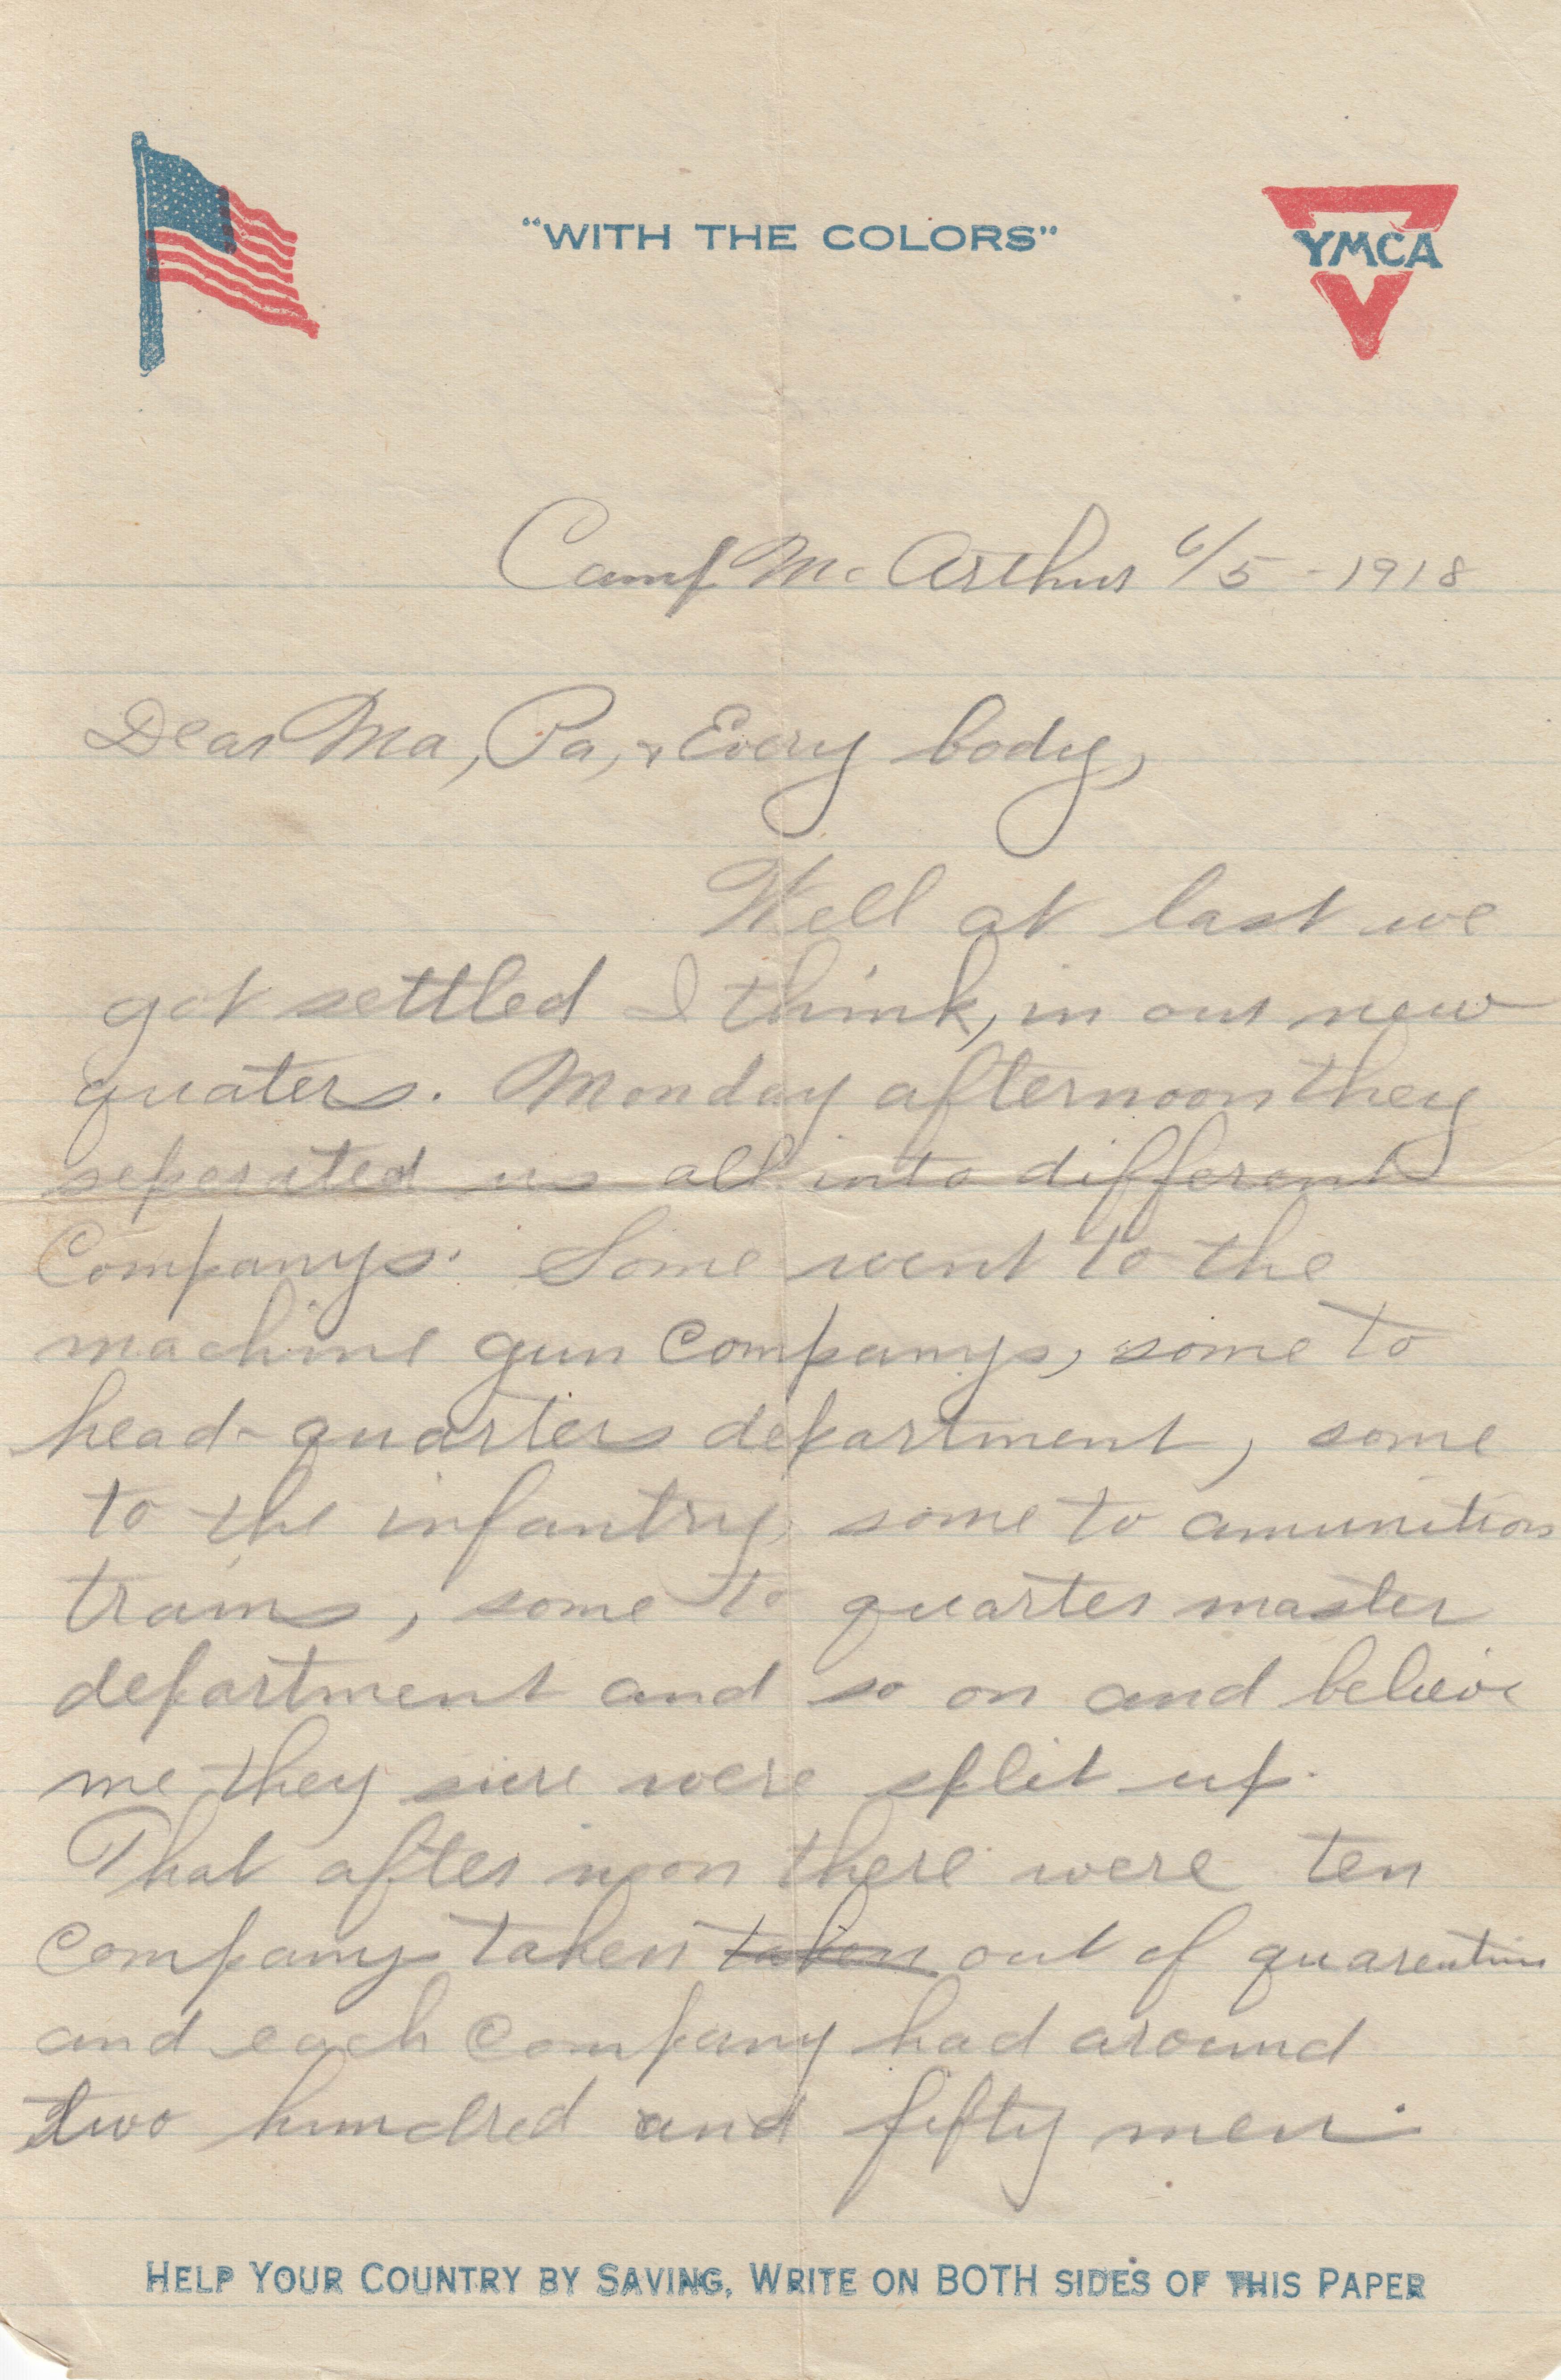 "WITH THE COLORS"
YMCA
Camp Mc Arthur 6/5 - 1918
Dear Ma, Pa, & Every body,
Well at last we
got settled I think, in our new
quaters. Monday afternoon they
seperated us all into different
Companys. Some went to the
machine gun Companys, some to
head-quarters department, some
to the infantry, some to amunition
trains, some to quarter master
department and so on and believe
me they sure were split up.
That after noon there were ten
Companys taken taken out of quarentine
and each Company had around
two hundred and fifty men.
HELP YOUR COUNTRY BY SAVING. WRITE ON BOTH SIDES OF THIS PAPER